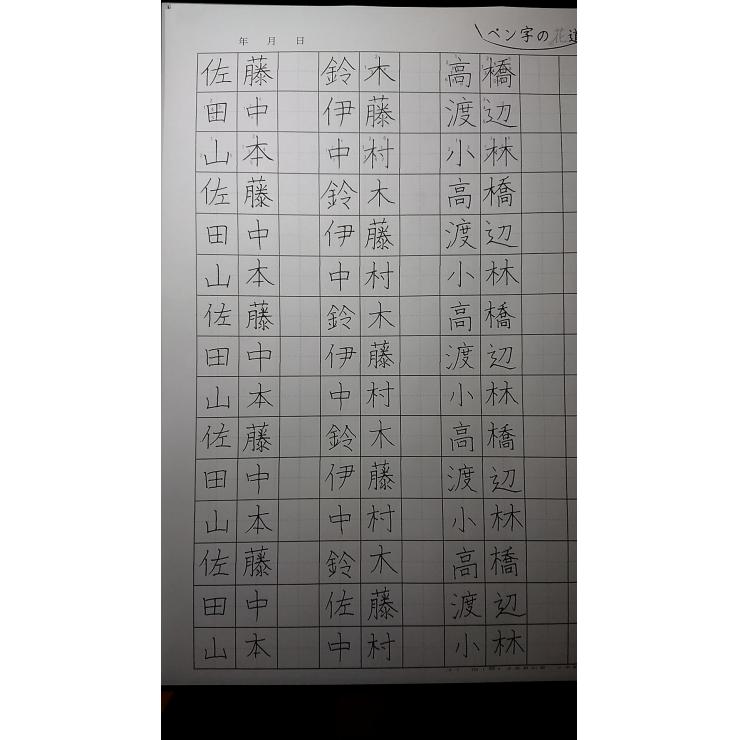 ペン字の花道
年 月 日
佐藤 鈴木 高橋
田中 伊藤 渡辺
山本 中村 小林
佐藤 鈴木 高橋
田中 伊藤 渡辺
山本 中村 小林
佐藤 鈴木 高橋
田中 伊藤 渡辺
山本 中村 小林
佐藤 鈴木 高橋
田中 伊藤 渡辺
山本 中村 小林
佐藤 鈴木 高橋
田中 佐藤 渡辺
山本 中村 小林